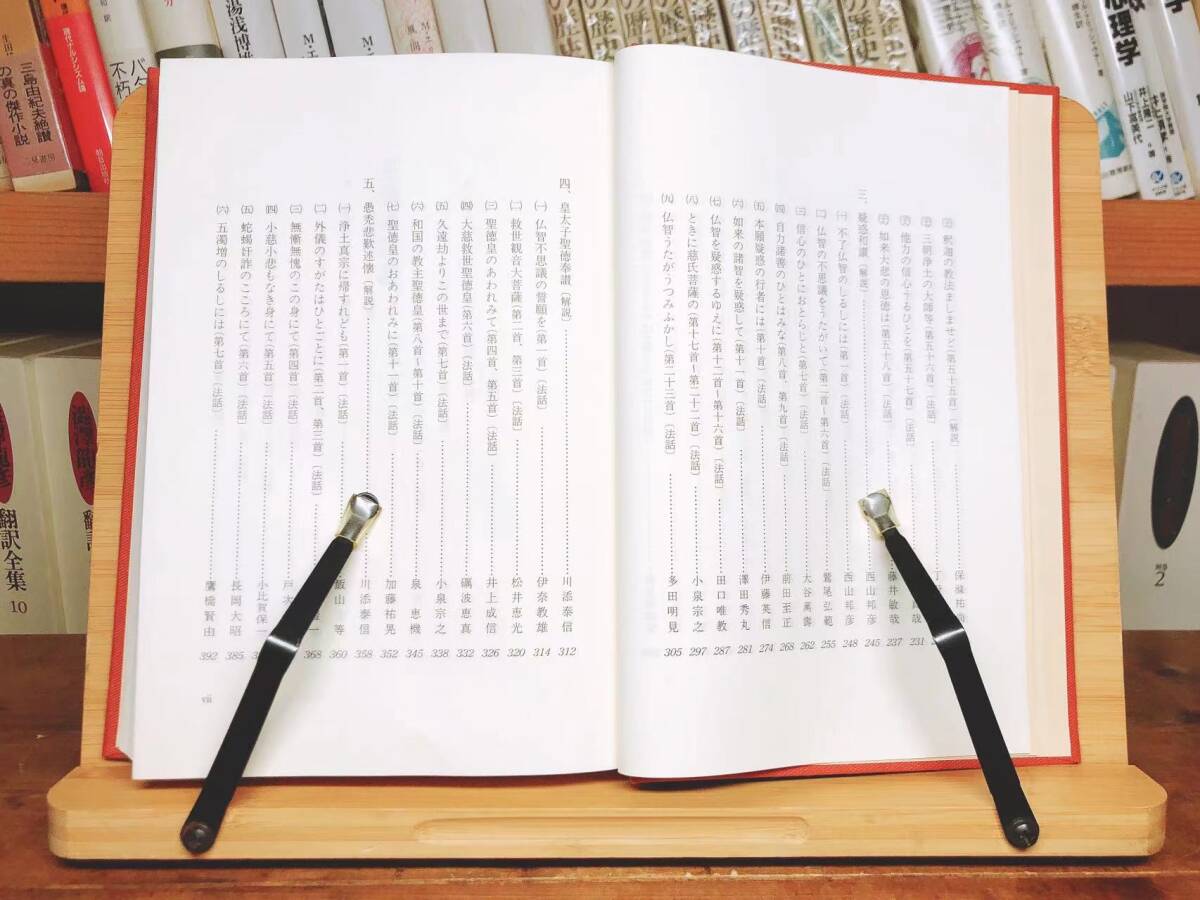 釈迦の教法ましませど(第五十五首)〔解説〕
三朝浄土の大師等(第五十六首)〔法話〕
他力の信心うるひとを(第五十七首)〔法話〕 231
如来大悲の恩徳は(第五十八首)〔法話〕 藤井敏哉 237
三、疑惑和讃〔解説〕 西山邦彦 245
㈠ 不了仏智のしるしには(第一首)〔法話〕 西山邦彦 248
㈡ 仏智の不思議をうたがいて(第二首〜第六首)〔法話〕 鷲尾弘範 255
㈢ 信心のひとにおとらじと(第七首)〔法話〕 大谷萬壽 262
㈣ 自力諸善のひとはみな(第八首、第九首)〔法話〕 前田至正 268
㈤ 本願疑惑の行者には(第十首)〔法話〕 伊藤英信 274
㈥ 如来の諸智を疑惑して(第十一首)〔法話〕 澤田秀丸 281
㈦ 仏智を疑惑するゆえに(第十二首〜第十六首)〔法話〕 田口唯教 287
㈧ ときに慈氏菩薩の(第十七首〜第二十二首)〔法話〕 小泉宗之 297
㈨ 仏智うたがうつみふかし(第二十三首)〔法話〕 多田明見 305
四、皇太子聖徳奉讃〔解説〕 川添泰信 312
㈠ 仏智不思議の誓願を(第一首)〔法話〕 伊奈教雄 314
㈡ 救世観音大菩薩(第二首、第三首)〔法話〕 松井恵光 320
㈢ 聖徳皇のあわれみて(第四首、第五首)〔法話〕 井上成信 326
㈣ 大慈救世聖徳皇(第六首)〔法話〕 礪波恵真 332
㈤ 久遠劫よりこの世まで(第七首)〔法話〕 小泉宗之 338
㈥ 和国の教主聖徳皇(第八首〜第十首)〔法話〕 泉 恵機 345
㈦ 聖徳皇のおあわれみに(第十一首)〔法話〕 加藤祐晃 352
五、愚禿悲歎述懐〔解説〕 川添泰信 358
㈠ 浄土真宗に帰すれども(第一首)〔法話〕 飯山 等 360
㈡ 外儀のすがたはひとごとに(第二首、第三首)〔法話〕 一 368
㈢ 無慚無愧のこの身にて(第四首)〔法話〕 戸
㈣ 小慈小悲もなき身にて(第五首)〔法話〕 小比賀保一
㈤ 蛇蝎奸詐のこころにて(第六首)〔法話〕 長岡大昭 385
㈥ 五濁増のしるしには(第七首)〔法話〕 鷹橋賢由 392
vii
三島由紀夫絶讃
の真の傑作小説
二見書房
現代ナルシシズム論
朝日出版社
不朽
湯浅博
M・エ
M・
の歴史
心理学
山下富美代
井上隆二
翻訳全集
10
2